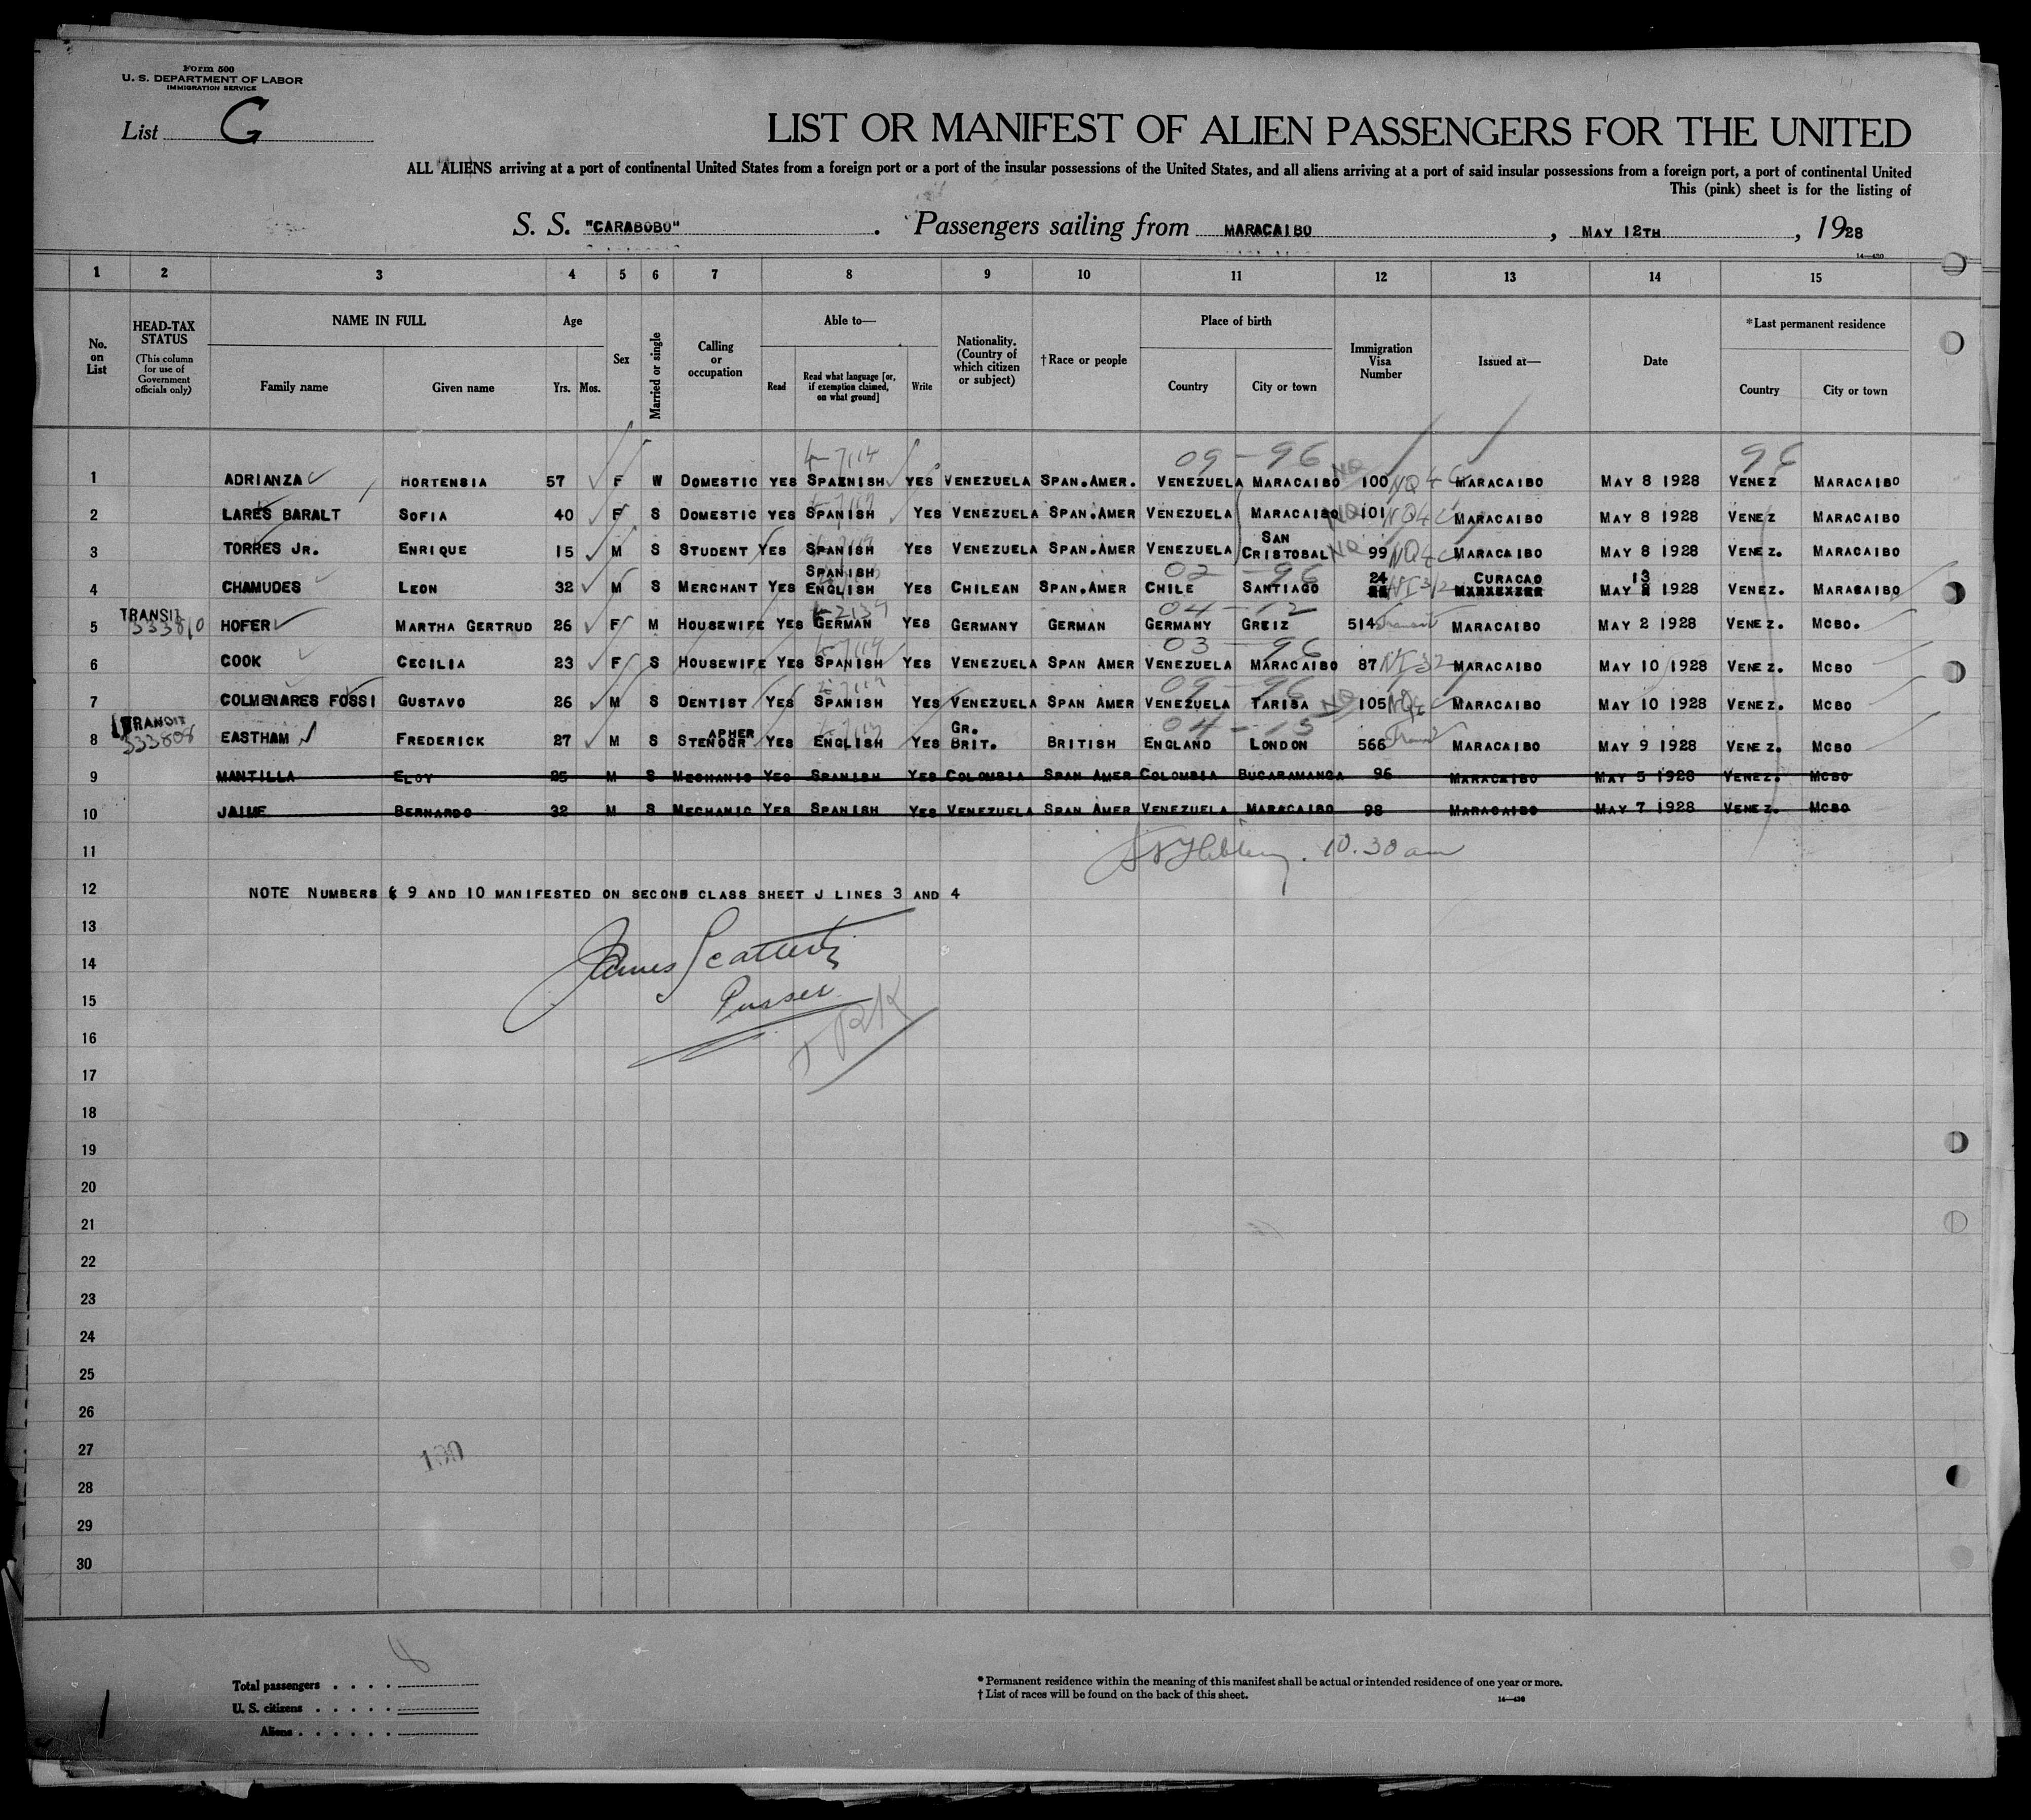 Form 500
U. S. DEPARTMENT OF LABOR
IMMIGRATION SERVICE
List G
LIST OR MANIFEST OF ALIEN PASSENGERS FOR THE UNITED
ALL ALIENS arriving at a port of continental United States from a foreign port or a port of the insular possessions of the United States, and all aliens arriving at a port of said insular possessions from a foreign port, a port of continental United
This (pink) sheet is for the listing of
S. S. "CARABOBO" . Passengers sailing from MARACAIBO , MAY 12TH , 1928
14—430
1 2 3 4 5 6 7 8 9 10 11 12 13 14 15
No. on List
HEAD-TAX STATUS (This column for use of Government officials only)
NAME IN FULL
Family name Given name
Age
Yrs. Mos.
Sex
Married or single
Calling or occupation
Able to—
Read
Read what language [or, if exemption claimed, on what ground]
Write
Nationality. (Country of which citizen or subject)
†Race or people
Place of birth
Country City or town
Immigration Visa Number
Issued at—
Date
*Last permanent residence
Country City or town
09-96 96
1 ADRIANZA HORTENSIA 57 F W DOMESTIC YES SPAZNISH YES VENEZUELA SPAN.AMER. VENEZUELA MARACAIBO NQ 100 NQ4C MARACAIBO MAY 8 1928 VENEZ MARACAIBO
2 LARES BARALT SOFIA 40 F S DOMESTIC YES SPANISH YES VENEZUELA SPAN.AMER VENEZUELA MARACAIBO NQ 101 NQ4C MARACAIBO MAY 8 1928 VENEZ MARACAIBO
3 TORRES JR. ENRIQUE 15 M S STUDENT YES SPANISH YES VENEZUELA SPAN.AMER VENEZUELA SAN CRISTOBAL NQ 99 NQ4C MARACAIBO MAY 8 1928 VENEZ. MARACAIBO
02-96
4 CHAMUDES LEON 32 M S MERCHANT YES SPANISH ENGLISH YES CHILEAN SPAN.AMER CHILE SANTIAGO 24 CURACAO MAY 13 1928 VENEZ. MARACAIBO
04-12
TRANSIT 333810
5 HOFER MARTHA GERTRUD 26 F M HOUSEWIFE YES GERMAN YES GERMANY GERMAN GERMANY GREIZ 514 Transit MARACAIBO MAY 2 1928 VENEZ. MCBO.
03-96
6 COOK CECILIA 23 F S HOUSEWIFE YES SPANISH YES VENEZUELA SPAN AMER VENEZUELA MARACAIBO 87 MARACAIBO MAY 10 1928 VENEZ. MCBO
09-96
7 COLMENARES FOSSI GUSTAVO 26 M S DENTIST YES SPANISH YES VENEZUELA SPAN AMER VENEZUELA TARIBA NQ 105 MARACAIBO MAY 10 1928 VENEZ. MCBO
04-15
TRANSIT 333808
8 EASTHAM FREDERICK 27 M S STENOGRAPHER YES ENGLISH YES GR. BRIT. BRITISH ENGLAND LONDON 566 MARACAIBO MAY 9 1928 VENEZ. MCBO
9 MANTILLA ELOY 25 M S MECHANIC YES SPANISH YES COLOMBIA SPAN AMER COLOMBIA BUCARAMANGA 96 MARACAIBO MAY 5 1928 VENEZ. MCBO
10 JAIME BERNARDO 32 M S MECHANIC YES SPANISH YES VENEZUELA SPAN AMER VENEZUELA MARACAIBO 98 MARACAIBO MAY 7 1928 VENEZ. MCBO
11 10.30 am
12 NOTE NUMBERS 9 AND 10 MANIFESTED ON SECOND CLASS SHEET J LINES 3 AND 4
13
14 James
15 Purser
16
17
18
19
20
21
22
23
24
25
26
27 100
28
29
30
8
Total passengers
U. S. citizens
Aliens
* Permanent residence within the meaning of this manifest shall be actual or intended residence of one year or more.
† List of races will be found on the back of this sheet.
14—430